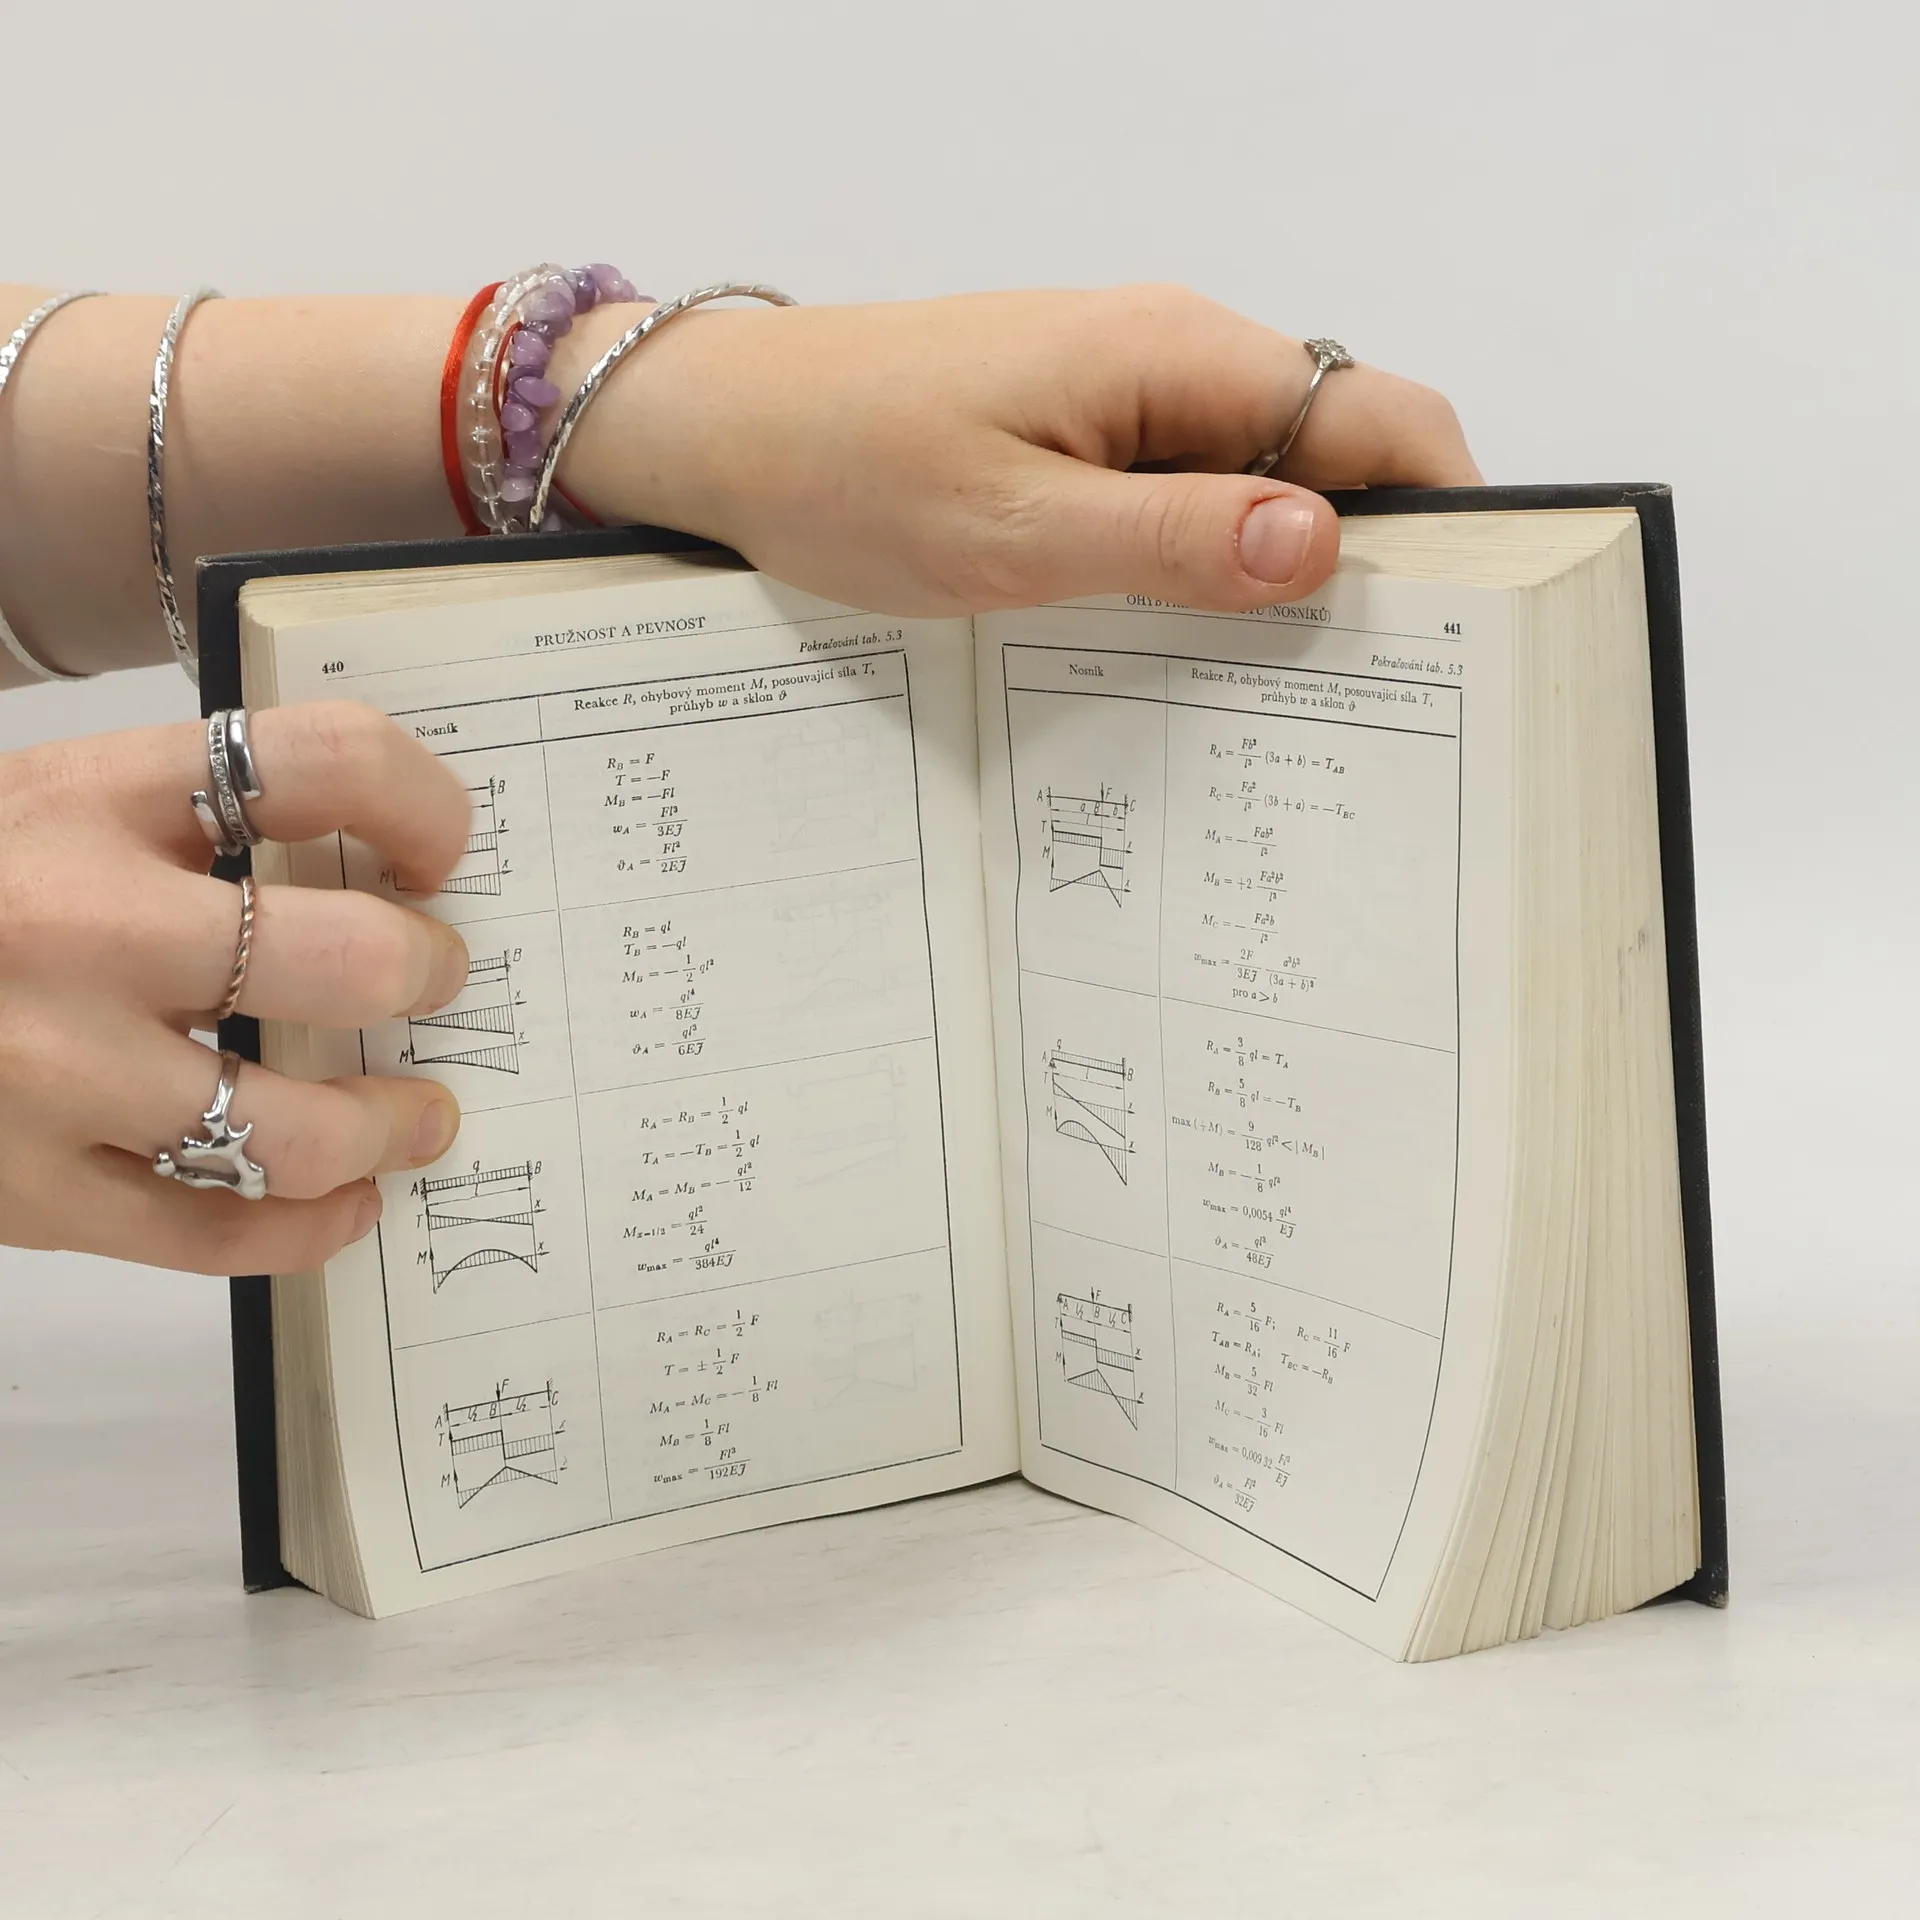 440
PRUŽNOST A PEVNOST
Pokračování tab. 5.3
Nosník
Reakce R, ohybový moment M, posouvající síla T,
průhyb w a sklon ϑ
B
x
x
M
R_B = F
T = −F
M_B = −Fl
w_A = Fl³/3EJ
ϑ_A = Fl²/2EJ
B
x
x
M
R_B = ql
T_B = −ql
M_B = − 1/2 ql²
w_A = ql⁴/8EJ
ϑ_A = ql³/6EJ
q
A B
l
T x
M x
R_A = R_B = 1/2 ql
T_A = −T_B = 1/2 ql
M_A = M_B = − ql²/12
M_x=1/2 = ql²/24
w_max = ql⁴/384EJ
F
A l/2 B l/2 C
T x
M
R_A = R_C = 1/2 F
T = ± 1/2 F
M_A = M_C = − 1/8 Fl
M_B = 1/8 Fl
w_max = Fl³/192EJ
(NOSNÍKŮ)
441
Pokračování tab. 5.3
Nosník
Reakce R, ohybový moment M, posouvající síla T,
průhyb w a sklon ϑ
F
A a B b C
l
T x
M x
R_A = Fb²/l³ (3a + b) = T_AB
R_C = Fa²/l³ (3b + a) = −T_BC
M_A = − Fab²/l²
M_B = +2 Fa²b²/l³
M_C = − Fa²b/l²
w_max = 2F/3EJ a³b²/(3a + b)²
pro a > b
q
A B
l
T x
M x
R_A = 3/8 ql = T_A
R_B = 5/8 ql = −T_B
max (+M) = 9/128 ql² < |M_B|
M_B = − 1/8 ql²
w_max = 0,0054 ql⁴/EJ
ϑ_A = ql³/48EJ
F
A l/2 B l/2 C
T x
M x
R_A = 5/16 F; R_C = 11/16 F
T_AB = R_A; T_BC = −R_B
M_B = 5/32 Fl
M_C = − 3/16 Fl
w_max = 0,00932 Fl³/EJ
ϑ_A = Fl²/32EJ